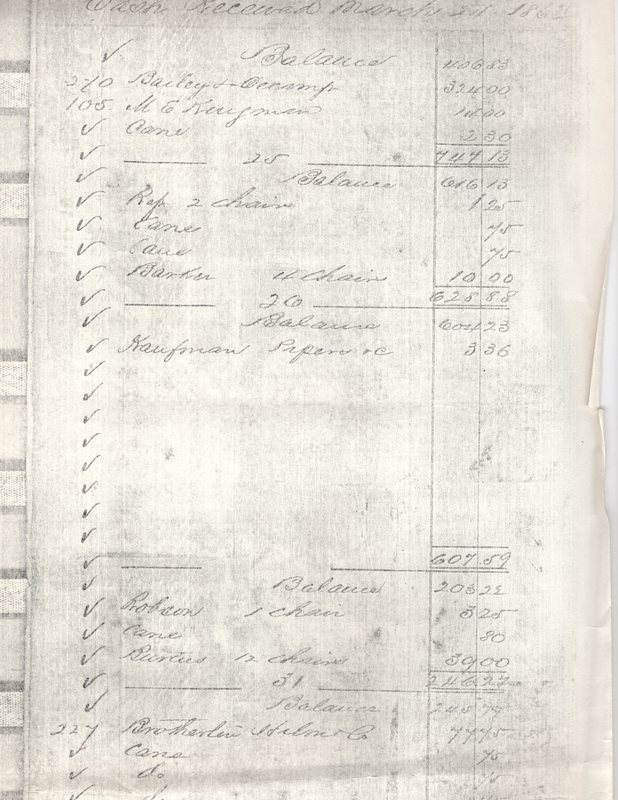 Cash Received March 24. 186
✓ Balance 406 83
270 Bailey & Occamp 324 00
105 M E Kingman 14 00
✓ Cane 2 30
✓ 25 747 13
✓ Balance 616 13
✓ Rep 2 chairs 1 25
✓ Cane 75
✓ Cane 75
✓ Barker 4 Chairs 10 00
✓ 26 628 88
✓ Balance 604 23
✓ Kaufman &c 3 36
✓
✓
✓
✓
✓
✓
✓
✓
✓ 607 59
✓ Balance 203 22
✓ Robson 1 chair 3 25
✓ Cane 80
✓ 12 Chairs 39 00
✓ 31 246 27
✓ Balance 245 77
227 Brotherlin Co 77 75
✓ Cane 75
✓ do 75
✓